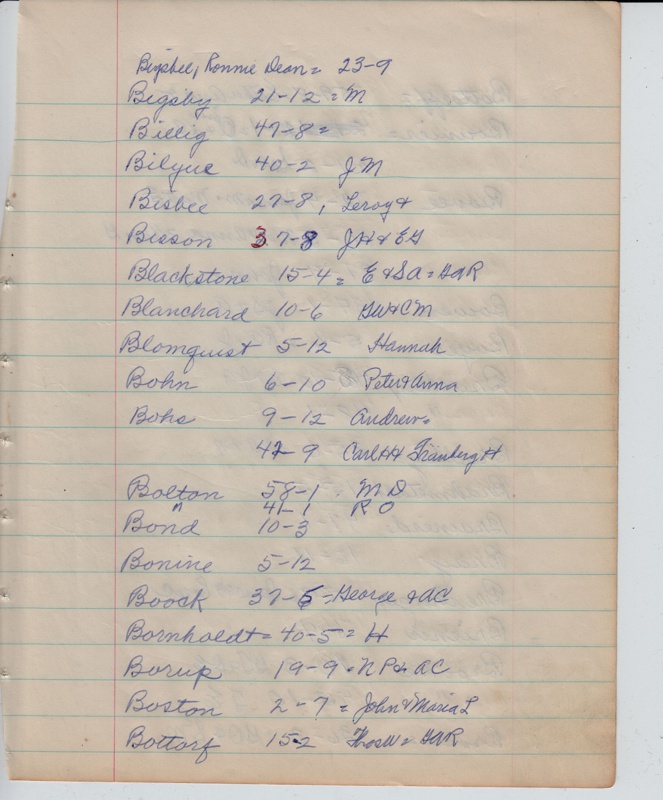 Bigsbee, Ronnie Dean = 23-9
Bigsby 21-12 = M
Billig 47-8 =
Bilyue 40-2 JM
Bisbee 27-8, Leroy &
Bisson 37-8 JH & EG
Blackstone 15-4 = E & SA = GAR
Blanchard 10-6 GW & CM
Blomquist 5-12 Hannah
Bohn 6-10 Peter & Anna
Bohs 9-12 Andrew =
42-9 Carl HH H
Bolton 58-1 MD
" 41-1 RO
Bond 10-3
Bonine 5-12
Boock 37-5 = George & AC
Bornholdt = 40-5 = H
Borup 19-9 = NP & AC
Boston 2-7 = John & Maria L
Bottorf 15-2 Thos W = GAR